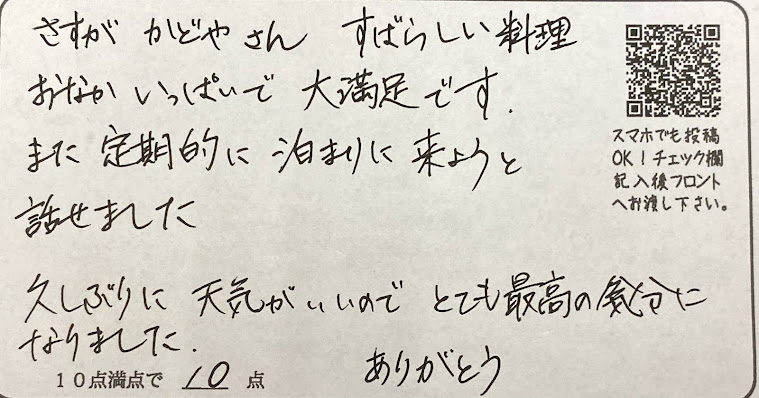 さすが かどやさん すばらしい料理
おなかいっぱいで 大満足です.
また 定期的に 泊まりに 来ようと
話せました
久しぶりに 天気がいいので とても最高の気分に
なりました.
ありがとう
10点満点で 10 点
スマホでも投稿
OK!チェック欄
記入後フロント
へお渡し下さい。